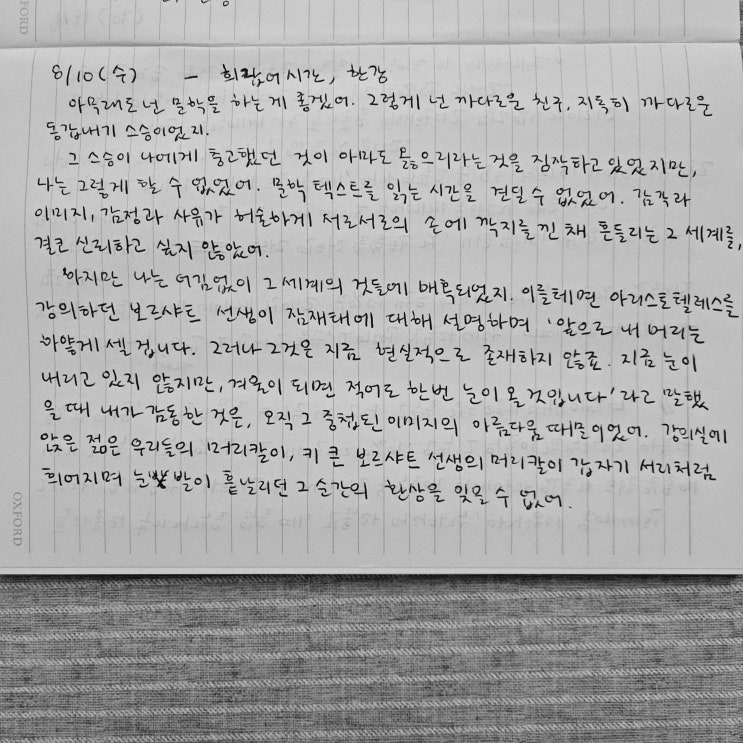 8/10(수) - 희랍어 시간, 한강
아무래도 넌 문학을 하는 게 좋겠어. 그렇게 넌 까다로운 친구, 지독히 까다로운
동갑내기 스승이었지.
그 스승이 나에게 충고했던 것이 아마도 옳으리라는 것을 짐작하고 있었지만,
나는 그렇게 할 수 없었어. 문학 텍스트를 읽는 시간을 견딜 수 없었어. 감각과
이미지, 감정과 사유가 허술하게 서로서로의 손에 깍지를 낀 채 흔들리는 그 세계를,
결코 신뢰하고 싶지 않았어.
하지만 나는 어김없이 그 세계의 것들에 매혹되었지. 이를테면 아리스토텔레스를
강의하던 보르샤트 선생이 잠재태에 대해 설명하며 '앞으로 내 머리는
하얗게 셀 겁니다. 그러나 그것은 지금 현실적으로 존재하지 않죠. 지금 눈이
내리고 있지 않지만, 겨울이 되면 적어도 한번 눈이 올 것입니다'라고 말했
을 때 내가 감동한 것은, 오직 그 중첩된 이미지의 아름다움 때문이었어. 강의실에
앉은 젊은 우리들의 머리칼이, 키 큰 보르샤트 선생의 머리칼이 갑자기 서리처럼
희어지며 눈발이 흩날리던 그 순간의 환상을 잊을 수 없어.
OXFORD
OXFORD